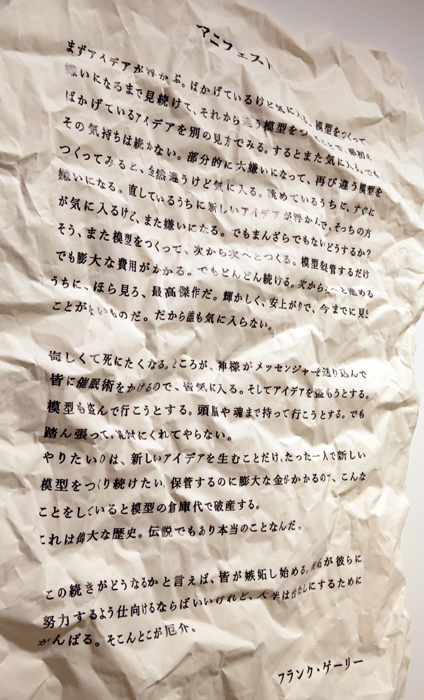 マニフェスト
まずアイデアが浮かぶ。ばかげているけど気に入る。模型をつくって
嫌いになるまで見続けて、それから違う模型をつくることで、最初の
ばかげているアイデアを別の見方でみる。するとまた気に入る。でも
その気持ちは続かない。部分的に大嫌いになって、再び違う模型を
つくってみると、全然違うけど気に入る。眺めているうちに、すぐに
嫌いになる。直しているうちに新しいアイデアが浮かんで、そっちの方
が気に入るけど、また嫌いになる。でもまんざらでもない。どうするか?
そう、また模型をつくって、次から次へとつくる。模型を保管するだけ
でも膨大な費用がかかる。でもどんどん続ける。次から次へと進める
うちに、ほら見ろ、最高傑作だ。輝かしく、安上がりで、今までに見た
ことがないものだ。だから誰も気に入らない。
悔しくて死にたくなる。ところが、神様がメッセンジャーを送り込んで
皆に催眠術をかけるので、皆気に入る。そしてアイデアを盗もうとする。
模型も盗んで行こうとする。頭脳や魂まで持って行こうとする。でも
踏ん張って、絶対にくれてやらない。
やりたいのは、新しいアイデアを生むことだけ。たった一人で新しい
模型をつくり続けたい。保管するのに膨大な金がかかるので、こんな
ことをしていると模型の倉庫代で破産する。
これは偉大な歴史。伝説でもあり本当のことなんだ。
この続きがどうなるかと言えば、皆が嫉妬し始める。嫉妬が彼らに
努力するよう仕向けるならばいいけれど、大半は台なしにするために
がんばる。そこんとこが厄介。
フランク・ゲーリー